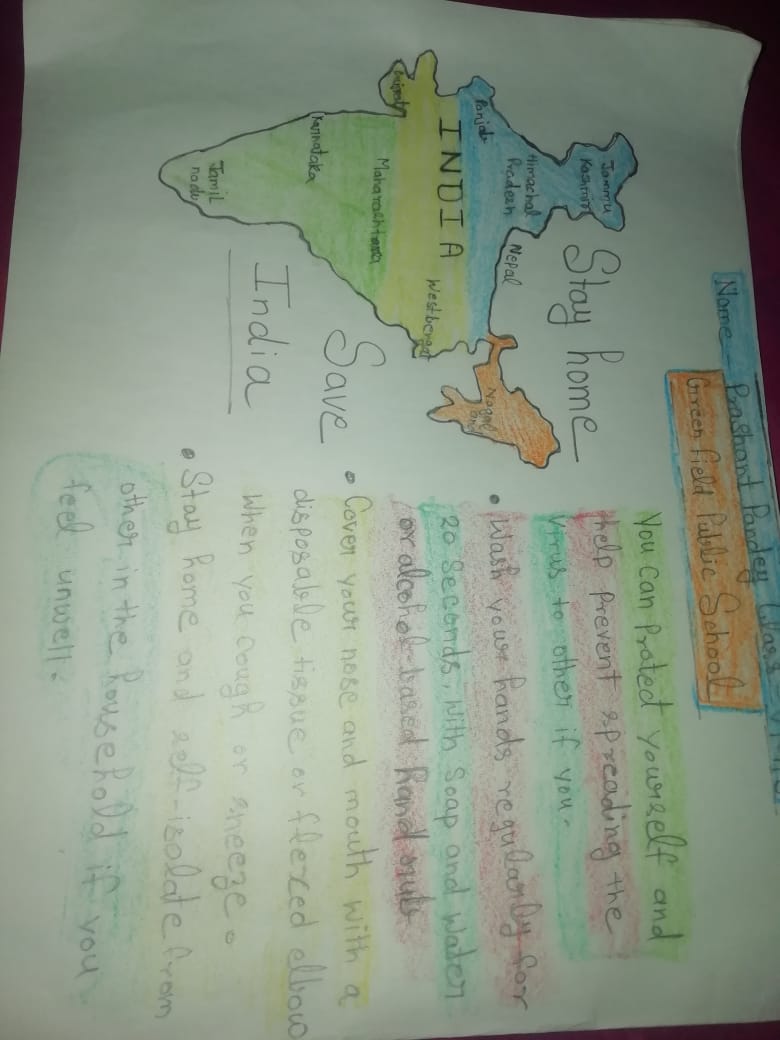 Name - Prashant Pandey Class
Green field Public School
Stay home
Save
India
Jammu
Kashmir
Himachal
Pradesh
Panjab
Nepal
INDIA
Gujrat
West bengal
Nagal
Maharashtra
Karnataka
Tamil
nadu
You can Protect yourself and
help prevent spreading the
virus to other if you.
• Wash your hands regularly for
20 seconds, with soap and water
or alcohol-based hand rub
• Cover your nose and mouth with a
disposable tissue or flexed elbow
when you cough or sneeze.
• Stay home and self-isolate from
other in the household if you
feel unwell.